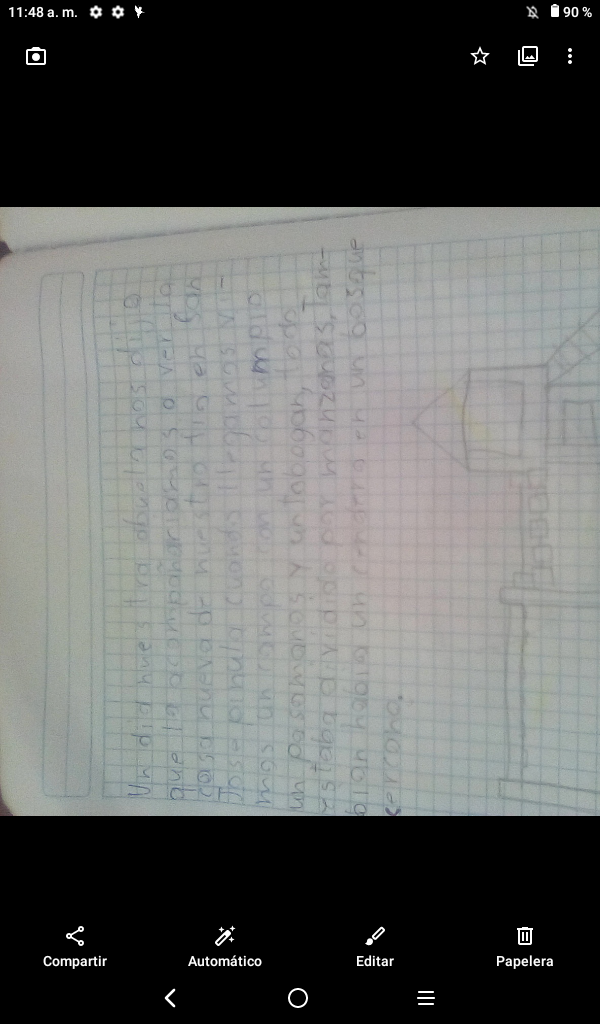 11:48 a. m.
90 %
Un dia nuestra abuela nos dijo
que la acompañariamos a ver la
casa nueva de nuestra tia en San
Jose pinula cuando llegamos vi-
mos un campo con un columpio
un pasamanos y un tobogan, todo
estaba dividido por manzanas, Tam-
bian habia un cendero en un bosque
cercano.
Compartir
Automático
Editar
Papelera